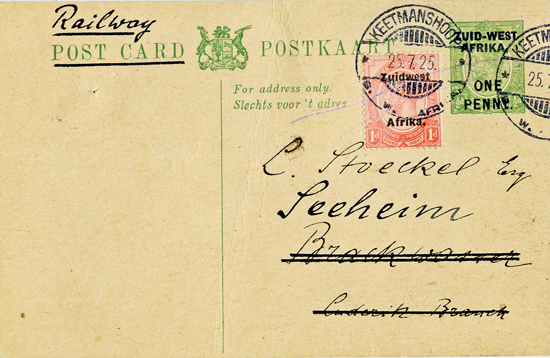 Railway
POST CARD POSTKAART
For address only.
Slechts voor 't adres.
KEETMANSHOOP
25.7.25.
S. W. AFRICA.
Zuidwest
Afrika.
1d 1d
ZUID-WEST
AFRIKA.
ONE
PENNY.
KEETM
25.
W.
L. Stoeckel Esq
Seeheim
Brackwasser
Luderitz Branch